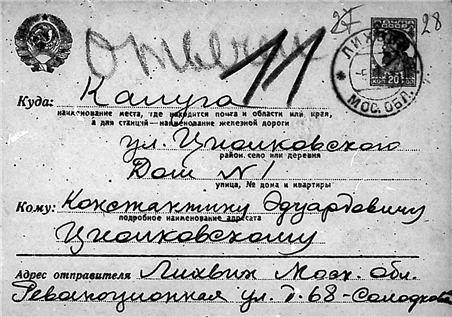 27 28
Ответил
11
ЛИХВИН
МОС. ОБЛ.
20
Куда: Калуга
наименование места, где находится почта и области или края,
а для станций—наименование железной дороги
ул. Циолковского
район, село или деревня
Дом №1
улица, № дома и квартиры
Кому: Константину Эдуардовичу
подробное наименование адресата
Циолковскому
Адрес отправителя Лихвин Моск. обл.
Революционная ул. д-68-